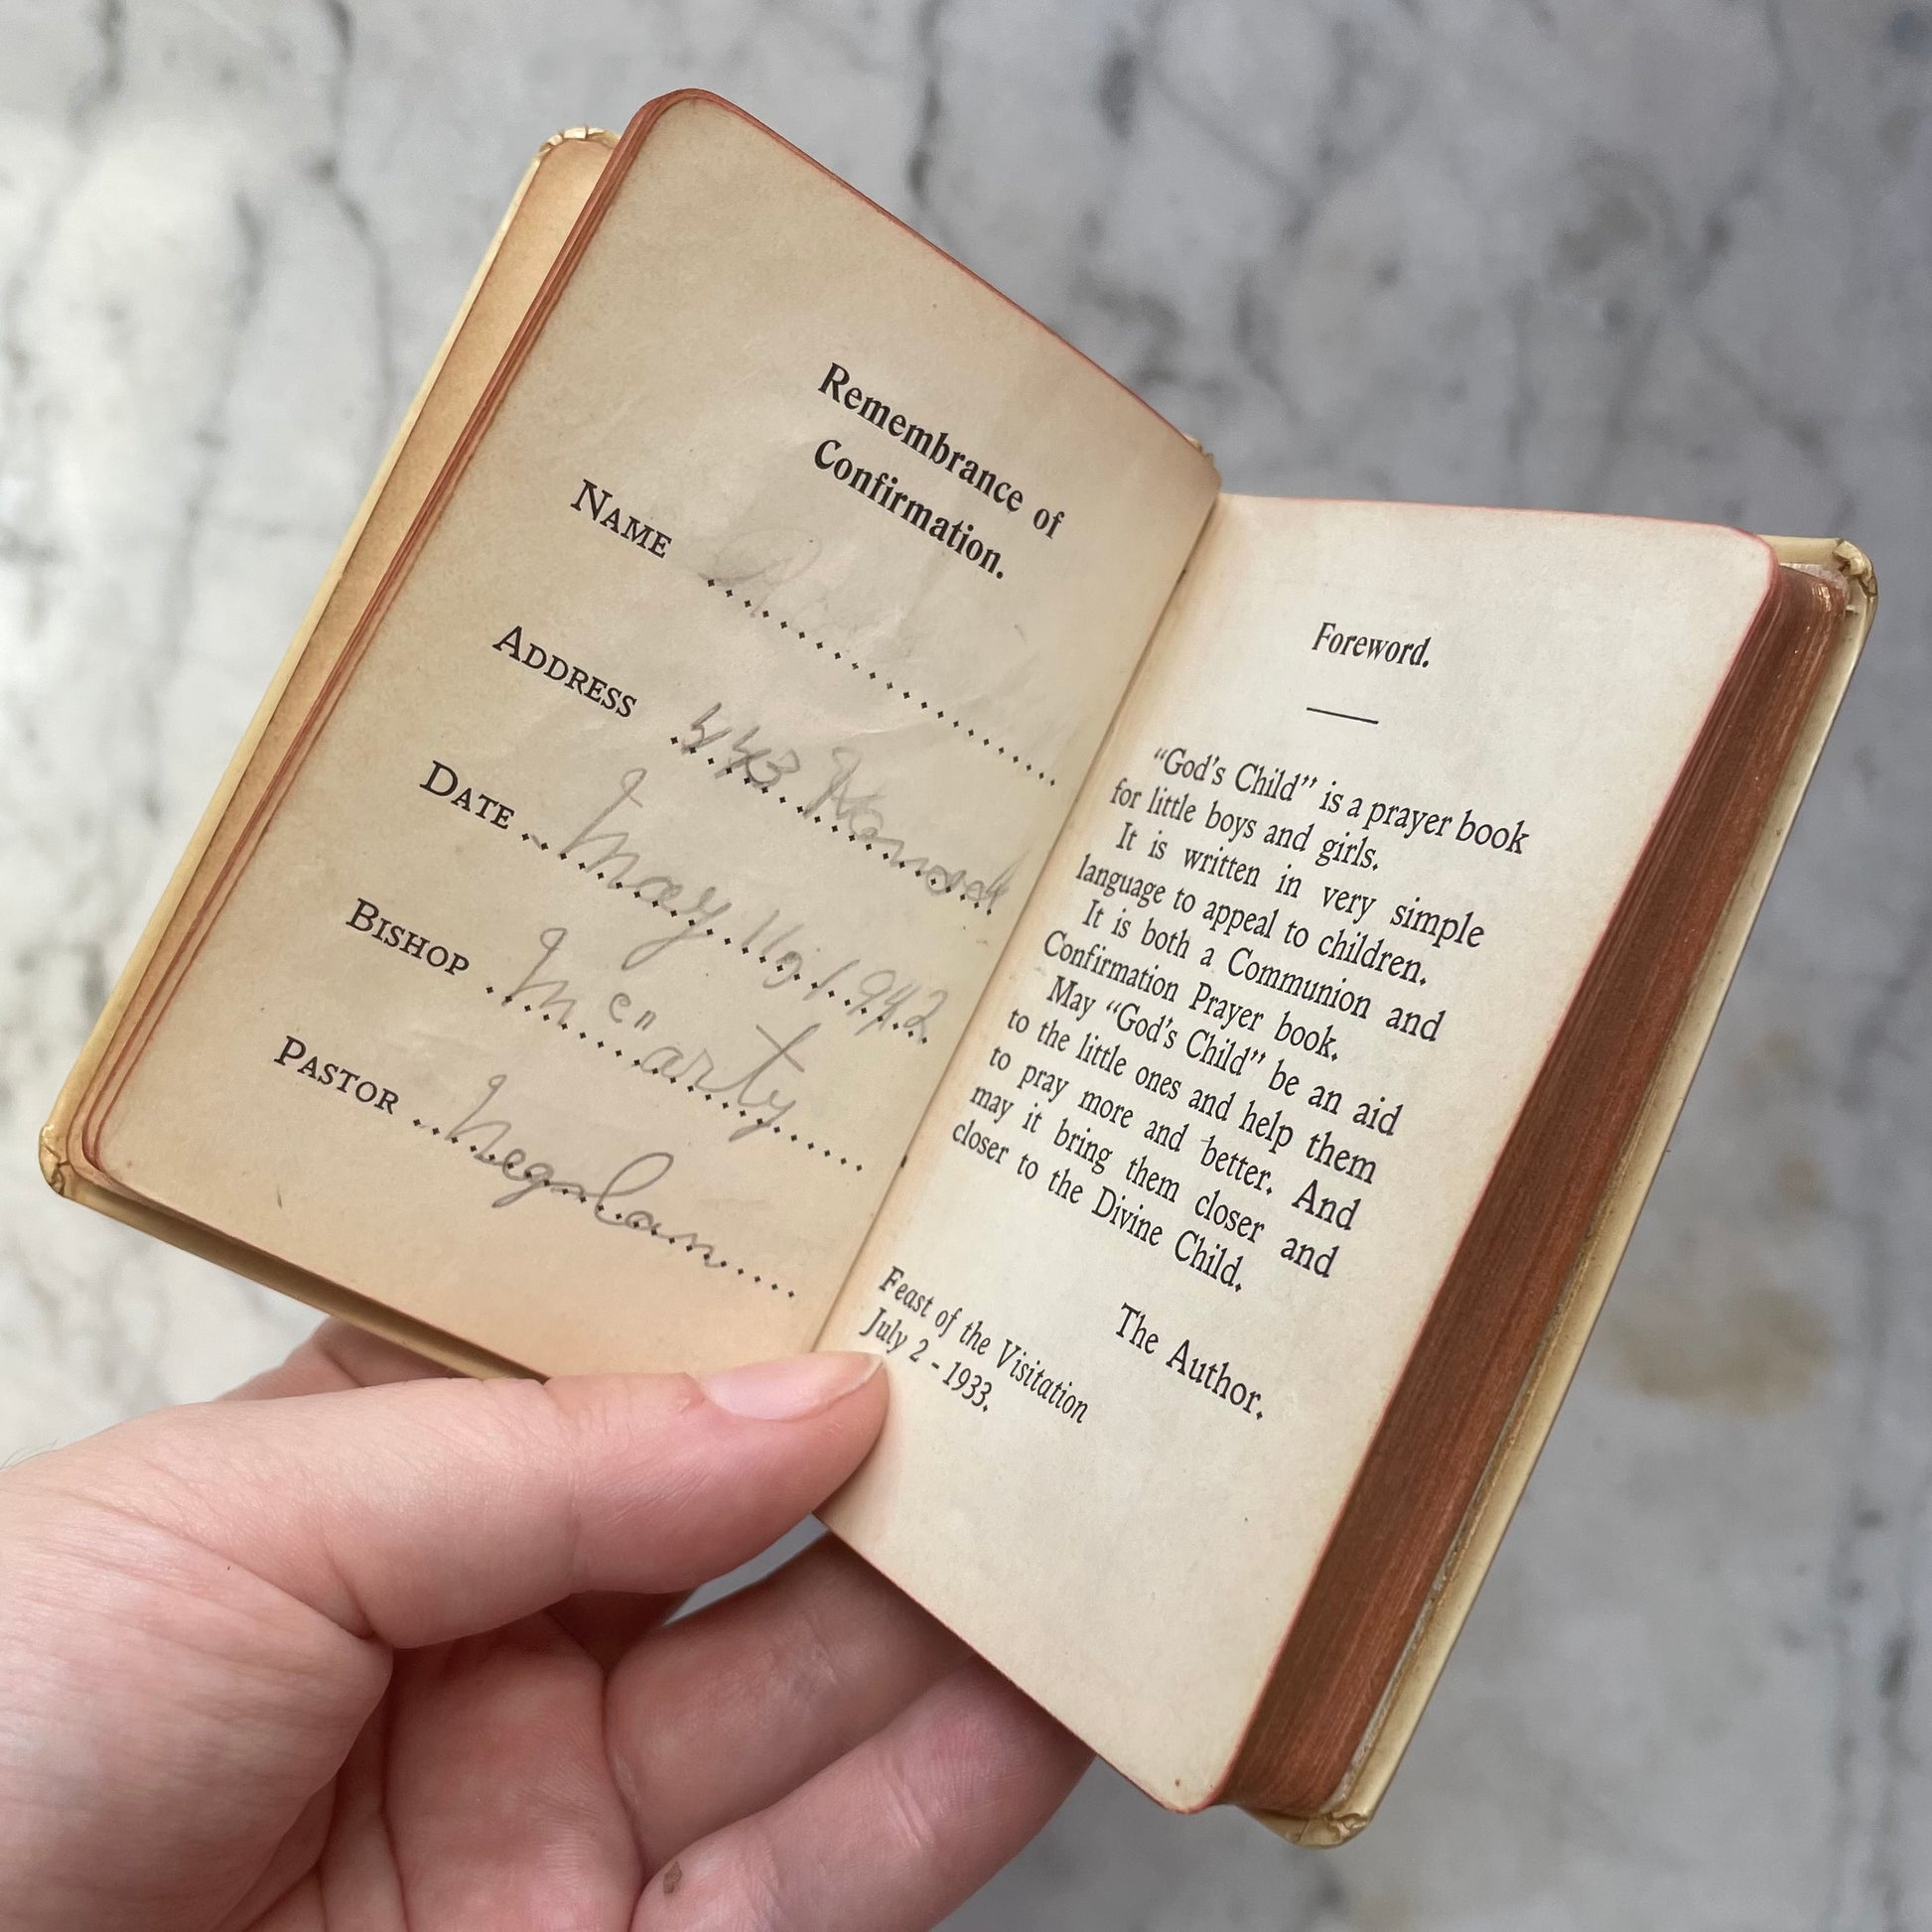 Remembrance of
Confirmation.
NAME
ADDRESS 443
DATE May 11, 1942
BISHOP Mc arty
PASTOR
Foreword.
“God's Child” is a prayer book
for little boys and girls.
It is written in very simple
language to appeal to children.
It is both a Communion and
Confirmation Prayer book.
May “God's Child” be an aid
to the little ones and help them
to pray more and better. And
may it bring them closer and
closer to the Divine Child.
The Author.
Feast of the Visitation
July 2 - 1933.